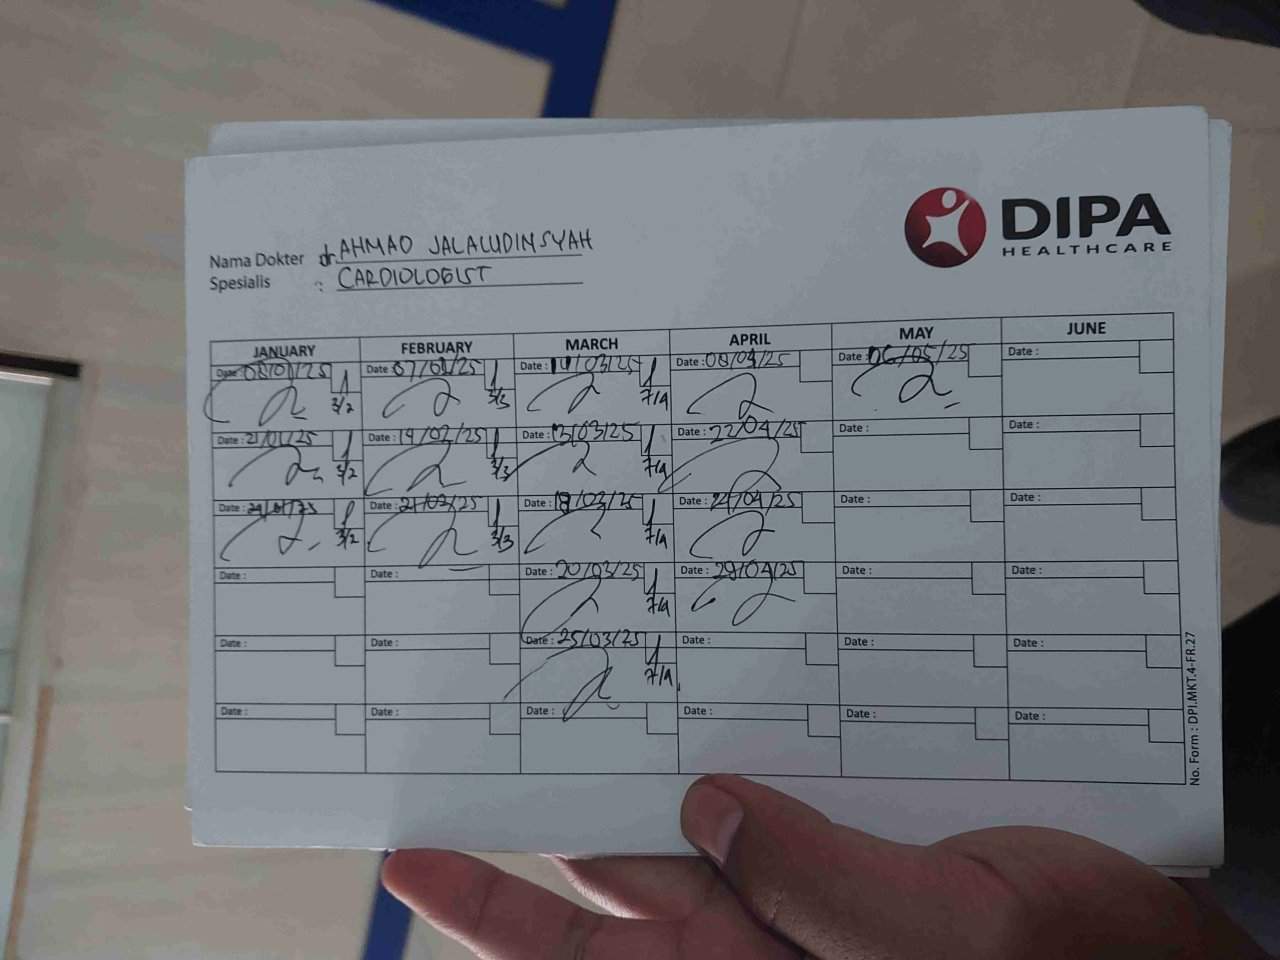 DIPA
HEALTHCARE
Nama Dokter dr. AHMAD JALALUDINSYAH
Spesialis : CARDIOLOGIST
JANUARY FEBRUARY MARCH APRIL MAY JUNE
Date : 08/01/25 Date : 07/02/25 Date : 11/03/25 Date : 08/04/25 Date : 06/05/25 Date :
3/2 3/3 7/4
Date : 21/01/25 Date : 14/02/25 Date : 13/03/25 Date : 22/04/25 Date : Date :
3/2 3/3 7/4
Date : Date : 21/02/25 Date : 18/03/25 Date : 24/04/25 Date : Date :
3/2 3/3 7/4
Date : Date : Date : 20/03/25 Date : 29/04/25 Date : Date :
7/4
Date : Date : Date : 25/03/25 Date : Date : Date :
7/4
Date : Date : Date : Date : Date : Date :
No. Form : DPI.MKT.4-FR.27